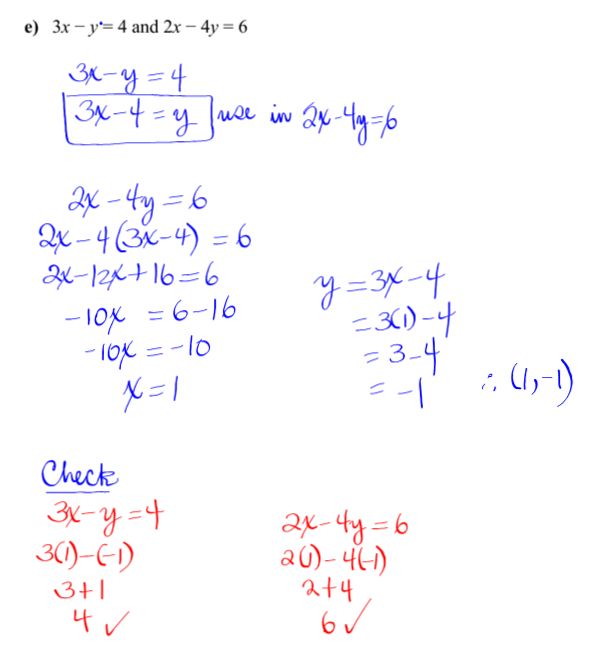 e) 3x – y = 4 and 2x – 4y = 6
3x-y = 4
3x-4 = y use in 2x-4y=6
2x - 4y = 6
2x - 4(3x-4) = 6
2x-12x+16=6
-10x = 6-16
-10x = -10
x = 1
y = 3x-4
= 3(1)-4
= 3-4
= -1 ∴ (1,-1)
Check
3x-y=4
3(1)-(-1)
3+1
4 ✓
2x-4y=6
2(1)-4(-1)
2+4
6 ✓